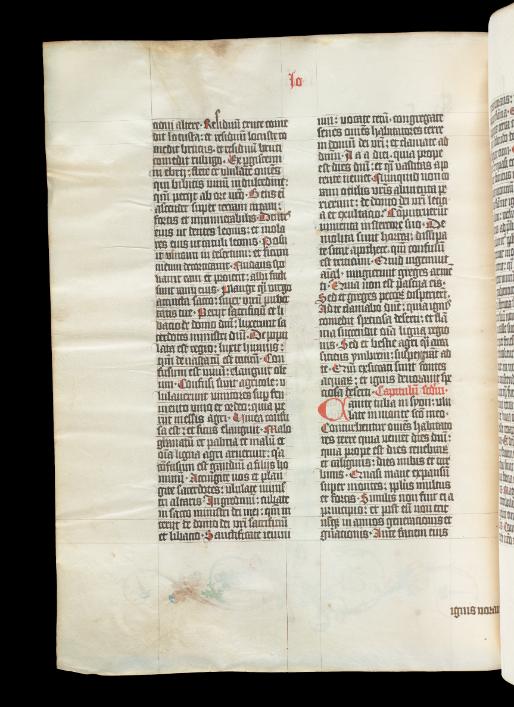 Jo
tioni altere. Residuū eruce come
dit locusta: et residuū locuste co
medit bruc9. et residuū bruci
comedit rubigo. Expgiscim
ini ebrij: flete et ululate om̄s
qui bibitis vinū in dulcedine:
qm̄ perijt ab ore vr̄o. Gens em̄
ascendit super terram meam:
fortis et innumerabilis. Dentes
eius ut dentes leonis: et mola
res eius ut catuli leonis. Posu
it vineam in desertum: et ficum
meam decorticauit. Nudans spo
liauit eam et proiecit: albi facti
sunt rami eius. Plange q̄si virgo
accincta sacco: super virū puber
tatis sue. Perijt sacrificiū et li
bacio de domo dn̄i: luxerunt sa
cerdotes ministri dn̄i. De popu
lata est regio: luxit humus:
qm̄ deuastatū est triticū. Con
fusum est vinū: elanguit ole
um. Confusi sunt agricole: u
lulauerunt vinitores sup fru
mento vineto et ordeo: quia pe
rijt messis agri. Vinea confu
sa est: et ficus elanguit. Malo
granatū et palma et malū et
om̄ia ligna agri aruerunt: q̄a
cōfusum est gaudiū a filijs ho
minū. Accingite vos et plan
gite sacerdotes: ululate minis
tri altaris. Ingredimi: cubate
in sacco ministri dei mei: qm̄ in
terijt de domo dei vr̄i sacrificiū
et libatio. Sanctificate ieiuni
um: vocate cetū: congregate
senes om̄es habitatores terre
in domū dei vr̄i: et clamate ad
dn̄m. A a a diei: quia prope
est dies dn̄i: et q̄si vastitas a po
tente ueniet. Nunquid non co
ram oculis vr̄is alimenta pe
rierunt: de domo dei vr̄i leticia
a et exultatio. Cōputruerūt
iumenta in stercore suo. De
molita sunt horrea: dissipa
te sunt apothece: qm̄ confusū
est triticum. Quid ingemuit
aīal: mugierunt greges armē
ti. Quia non est pascua eis.
Sed et greges pecorū disperierūt.
Ad te clamabo dn̄e: quia ignis
comedit speciosa deserti: et flā
ma succendit om̄ia ligna regio
nis. Sed et bestie agri q̄si area
sitiens ymbrem: suspexerūt ad
te. Qm̄ exsiccati sunt fontes
aquarū: et ignis deuorauit spe
ciosa deserti. Capitulū scdm.
Canite tuba in syon: ulu
late in monte sc̄o meo.
Conturbentur om̄es habitato
res terre quia venit dies dn̄i:
quia prope est dies tenebrarū
et caliginis: dies nubis et tur
binis. Quasi mane expansū
super montes: ppl̄us multus
et fortis. Similis non fuit ei a
principio: et post eū non erit
usq̄ in annos generationis et
gn̄ationis. Ante faciem eius
ignis vorans